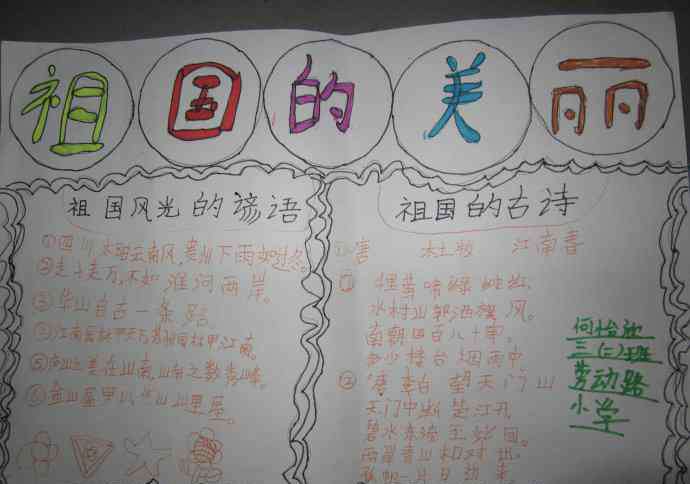 祖国的美丽
祖国风光的谚语
①四川太阳云南风,贵州下雨如过冬。
②走千走万,不如淮河两岸。
③华山自古一条路
江南园林甲天下,苏州园林甲江南。
⑤山之美在山南,山
⑥金山屋山山里屋。
祖国的古诗
唐 杜牧 江南春
①里莺啼绿映红,
水村山郭酒旗风。
南朝四百八十寺,
多少楼台烟雨中
②唐 李白 望天门山
天门中断楚江开
碧水东流至此回。
两岸青山相对出,
孤帆一片日边来
何怡
三(二)班
劳动路
小学